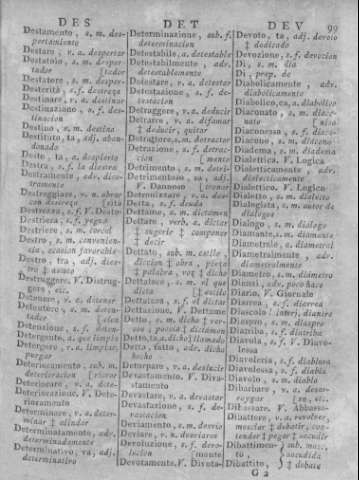 DES
DET
DEV
99
Destamento, s. m. des-
pertamiento
Destare, v. a. despertar
Destatoio, s. m. desper-
tador
Destatore, s. m. desper-
tador
Desterità, s. f. destreza
Destinare, v. a. destinar
Destinazione, s. f. des-
tinacion
Destino, s. m. destino
Destituto, ta, adj. aban-
donado
Desto, ta, a. despierto
Destra, s. f. la diestra
Destramente, adv. dies-
tramente
Destreggiare, v. n. obrar
con destreza
Destrezza, s. f. V. Deste-
Destriera, s. f. yegua
Destriere, s. m. corcel
Destro, s. m. convenien-
cia, ocasion favorable
Destro, tra, adj. dies-
tro ‡ astuto
Destruggere, V. Distrug-
gere, etc.
Detenere, v. a. detener
Detentore, s. m. deten-
tador
Detenzione, s. f. deten-
Detergente, a. que limpia
Detergere, v. a. limpiar,
purgar
Deterioramento, sub. m.
deterioracion
Deteriorare, v. a. dete-
Deteriorazione, V. Dete-
rioramento
Determinare, v. a. deter-
minar ‡ alindar
Determinatamente, adv.
determinadamente
Determinativo, va, adj.
determinativo
Determinazione, sub. f.
determinacion
Detestabile, a. detestable
Detestabilmente, adv.
detestablemente
Detestare, v. a. detestar
Detestazione, s. f. de-
testacion
Detraggere, v. a. deducir
Detrarre, v. a. difamar
‡ deducir, quitar
Detrattore, s. m. detractor
Detrazione, s. f. detrac-
cion
Detrimento, s. m. detri-
Detrimentoso, sa, adj.
V. Dannoso
Detronizzare, v. a. des-
Detta, s. f. deuda
Dettame, s. m. dictamen
Dettare, verb. a. dictar
‡ sugerir ‡ componer
‡ decir
Dettato, sub. m. estilo,
diction ‡ obra, poesia
‡ palabra, voz ‡ dicho
Dettatore, s. m. el que
dicta
Dettatura, s. f. el dictar
Dettazione, V. Dettame
Detto, s. m. dicho ‡ ver-
sos, poesia ‡ dictamen
Detto, ta, a. dicho; llamado
Detta, fatto, adv. dicho
hecho
Deturpare, v. a. desluzir
Devastamento, V. Diva-
stamento
Devastare, v. a. devastar
Devastazione, s. f. de-
vastacion
Deviamento, s. m. desvio
Deviare, v. n. desviarse
Devoluzione, s. f. devo-
lucion
Devotamente, V. Divota-
Devoto, ta, adj. devoto
‡ dedicado
Devozione, s. f. devocion
Di, s. m. dia
Di, prep. de
Diabolicamente, adv.
diabolicamente
Diabolico, ca, a. diabólico
Diaconato, s. m. diaco-
nato
Diaconessa, s. f. diaco-
Diacono, s. m. diácono
Diadema, s. m. diadema
Dialettica, V. Logica
Dialetticamente, adv.
dialecticamente
Dialettico, V. Logico
Dialetto, s. m. dialecto
Dialogista, s. m. autor de
diálogos
Dialogo, s. m. diálogo
Diamante, s. m. diamante
Diametrale, a. diametral
Diametralmente, adv.
diametralmente
Diametro, s. m. diámetro
Dianzi, adv. poco hace
Diario, V. Giornale
Diarrea, s. f. diarrea
Diascolo! interj. diantre
Diaspro, s. m. diaspro
Diatriba, s. f. diatriba
Diavola, s. f. V. Diavo-
lessa
Diavoleria, s. f. diablura
Diavolessa, s. f. diabla
Diavolo, s. m. diablo
Dibarbare, v. a. desar-
raygar
Dibassare, V. Abbassare
Dibattere, v. a. revolver,
mesclar ‡ debatir, con-
tender ‡ pegar ‡ sacudir
Dibattimento, sub. m.
sacudida
Dibattito, ‡ debate
G 2